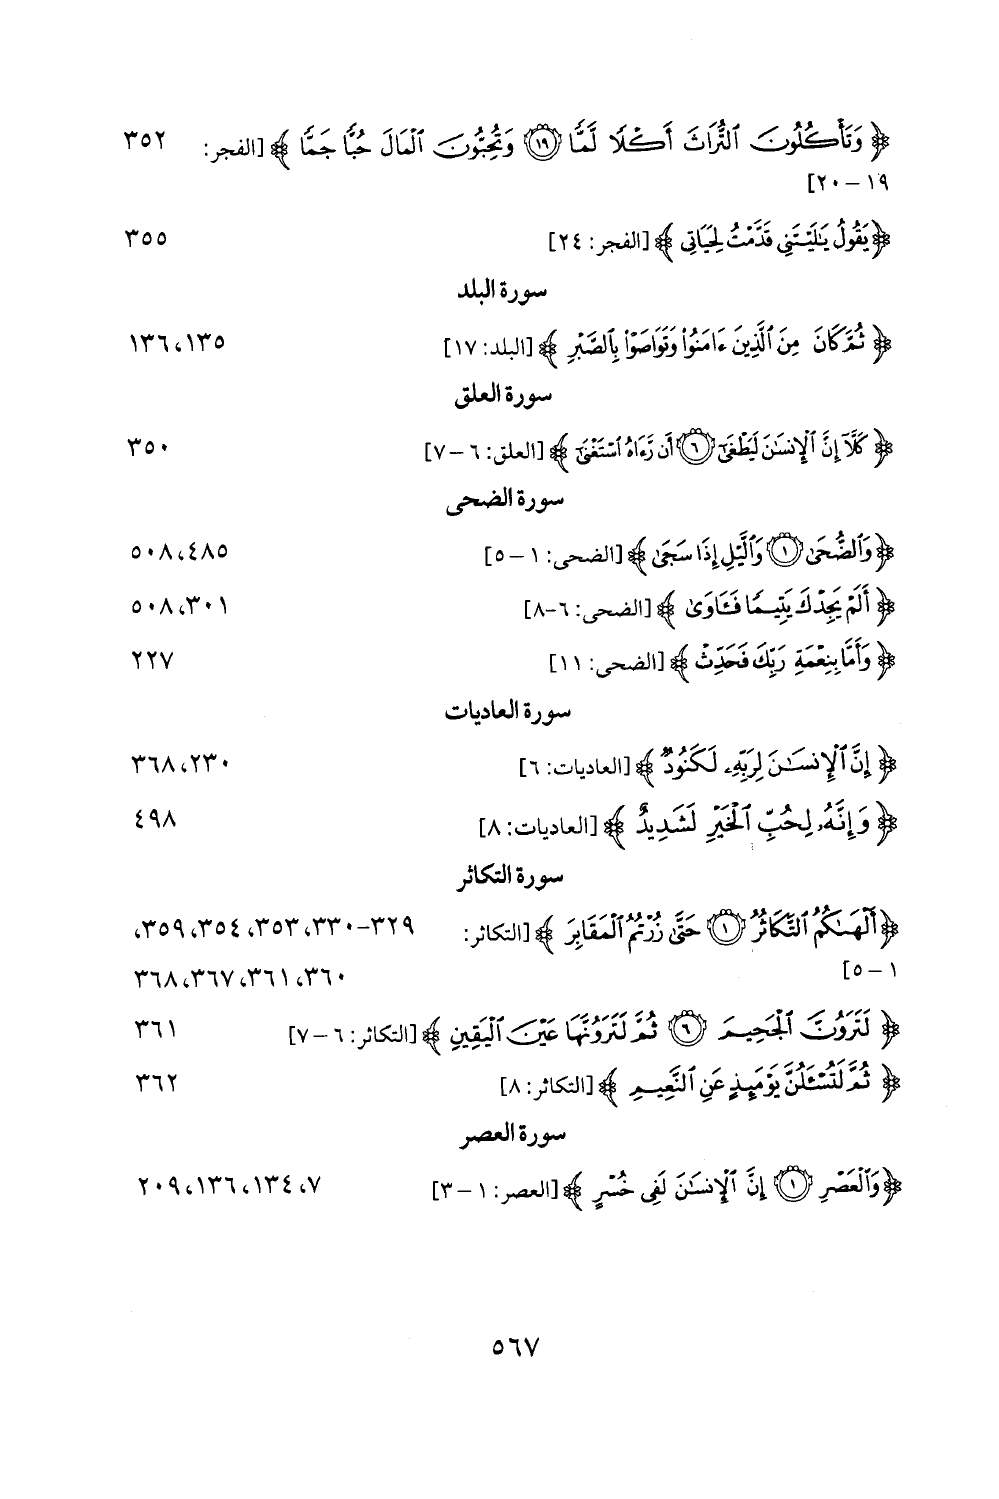 ﴿ وَتَأْكُلُونَ ٱلتُّرَاثَ أَكْلًا لَّمًّا ١٩ وَتُحِبُّونَ ٱلْمَالَ حُبًّا جَمًّا ﴾ [الفجر: ٣٥٢
١٩ – ٢٠]
﴿ يَقُولُ يَٰلَيْتَنِى قَدَّمْتُ لِحَيَاتِى ﴾ [الفجر: ٢٤] ٣٥٥
سورة البلد
﴿ ثُمَّ كَانَ مِنَ ٱلَّذِينَ ءَامَنُوا۟ وَتَوَاصَوْا۟ بِٱلصَّبْرِ ﴾ [البلد: ١٧] ١٣٥، ١٣٦
سورة العلق
﴿ كَلَّآ إِنَّ ٱلْإِنسَٰنَ لَيَطْغَىٰٓ ٦ أَن رَّءَاهُ ٱسْتَغْنَىٰٓ ﴾ [العلق: ٦ – ٧] ٣٥٠
سورة الضحى
﴿ وَٱلضُّحَىٰ ١ وَٱلَّيْلِ إِذَا سَجَىٰ ﴾ [الضحى: ١ – ٥] ٤٨٥، ٥٠٨
﴿ أَلَمْ يَجِدْكَ يَتِيمًا فَـَٔاوَىٰ ﴾ [الضحى: ٦-٨] ٣٠١، ٥٠٨
﴿ وَأَمَّا بِنِعْمَةِ رَبِّكَ فَحَدِّثْ ﴾ [الضحى: ١١] ٢٢٧
سورة العاديات
﴿ إِنَّ ٱلْإِنسَٰنَ لِرَبِّهِۦ لَكَنُودٌ ﴾ [العاديات: ٦] ٢٣٠، ٣٦٨
﴿ وَإِنَّهُۥ لِحُبِّ ٱلْخَيْرِ لَشَدِيدٌ ﴾ [العاديات: ٨] ٤٩٨
سورة التكاثر
﴿ أَلْهَىٰكُمُ ٱلتَّكَاثُرُ ١ حَتَّىٰ زُرْتُمُ ٱلْمَقَابِرَ ﴾ [التكاثر: ٣٢٩-٣٣٠، ٣٥٣، ٣٥٤، ٣٥٩،
١ – ٥] ٣٦٠، ٣٦١، ٣٦٧، ٣٦٨
﴿ لَتَرَوُنَّ ٱلْجَحِيمَ ٦ ثُمَّ لَتَرَوُنَّهَا عَيْنَ ٱلْيَقِينِ ﴾ [التكاثر: ٦ – ٧] ٣٦١
﴿ ثُمَّ لَتُسْـَٔلُنَّ يَوْمَئِذٍ عَنِ ٱلنَّعِيمِ ﴾ [التكاثر: ٨] ٣٦٢
سورة العصر
﴿ وَٱلْعَصْرِ ١ إِنَّ ٱلْإِنسَٰنَ لَفِى خُسْرٍ ﴾ [العصر: ١ – ٣] ٧، ١٣٤، ١٣٦، ٢٠٩
٥٦٧